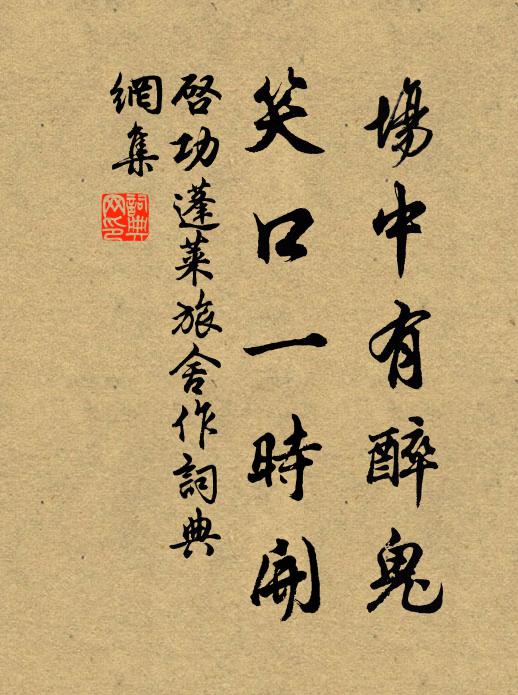 場中有醉鬼
笑口一時開
啓功蓬萊旅舍作詞典
網集
詞典網印